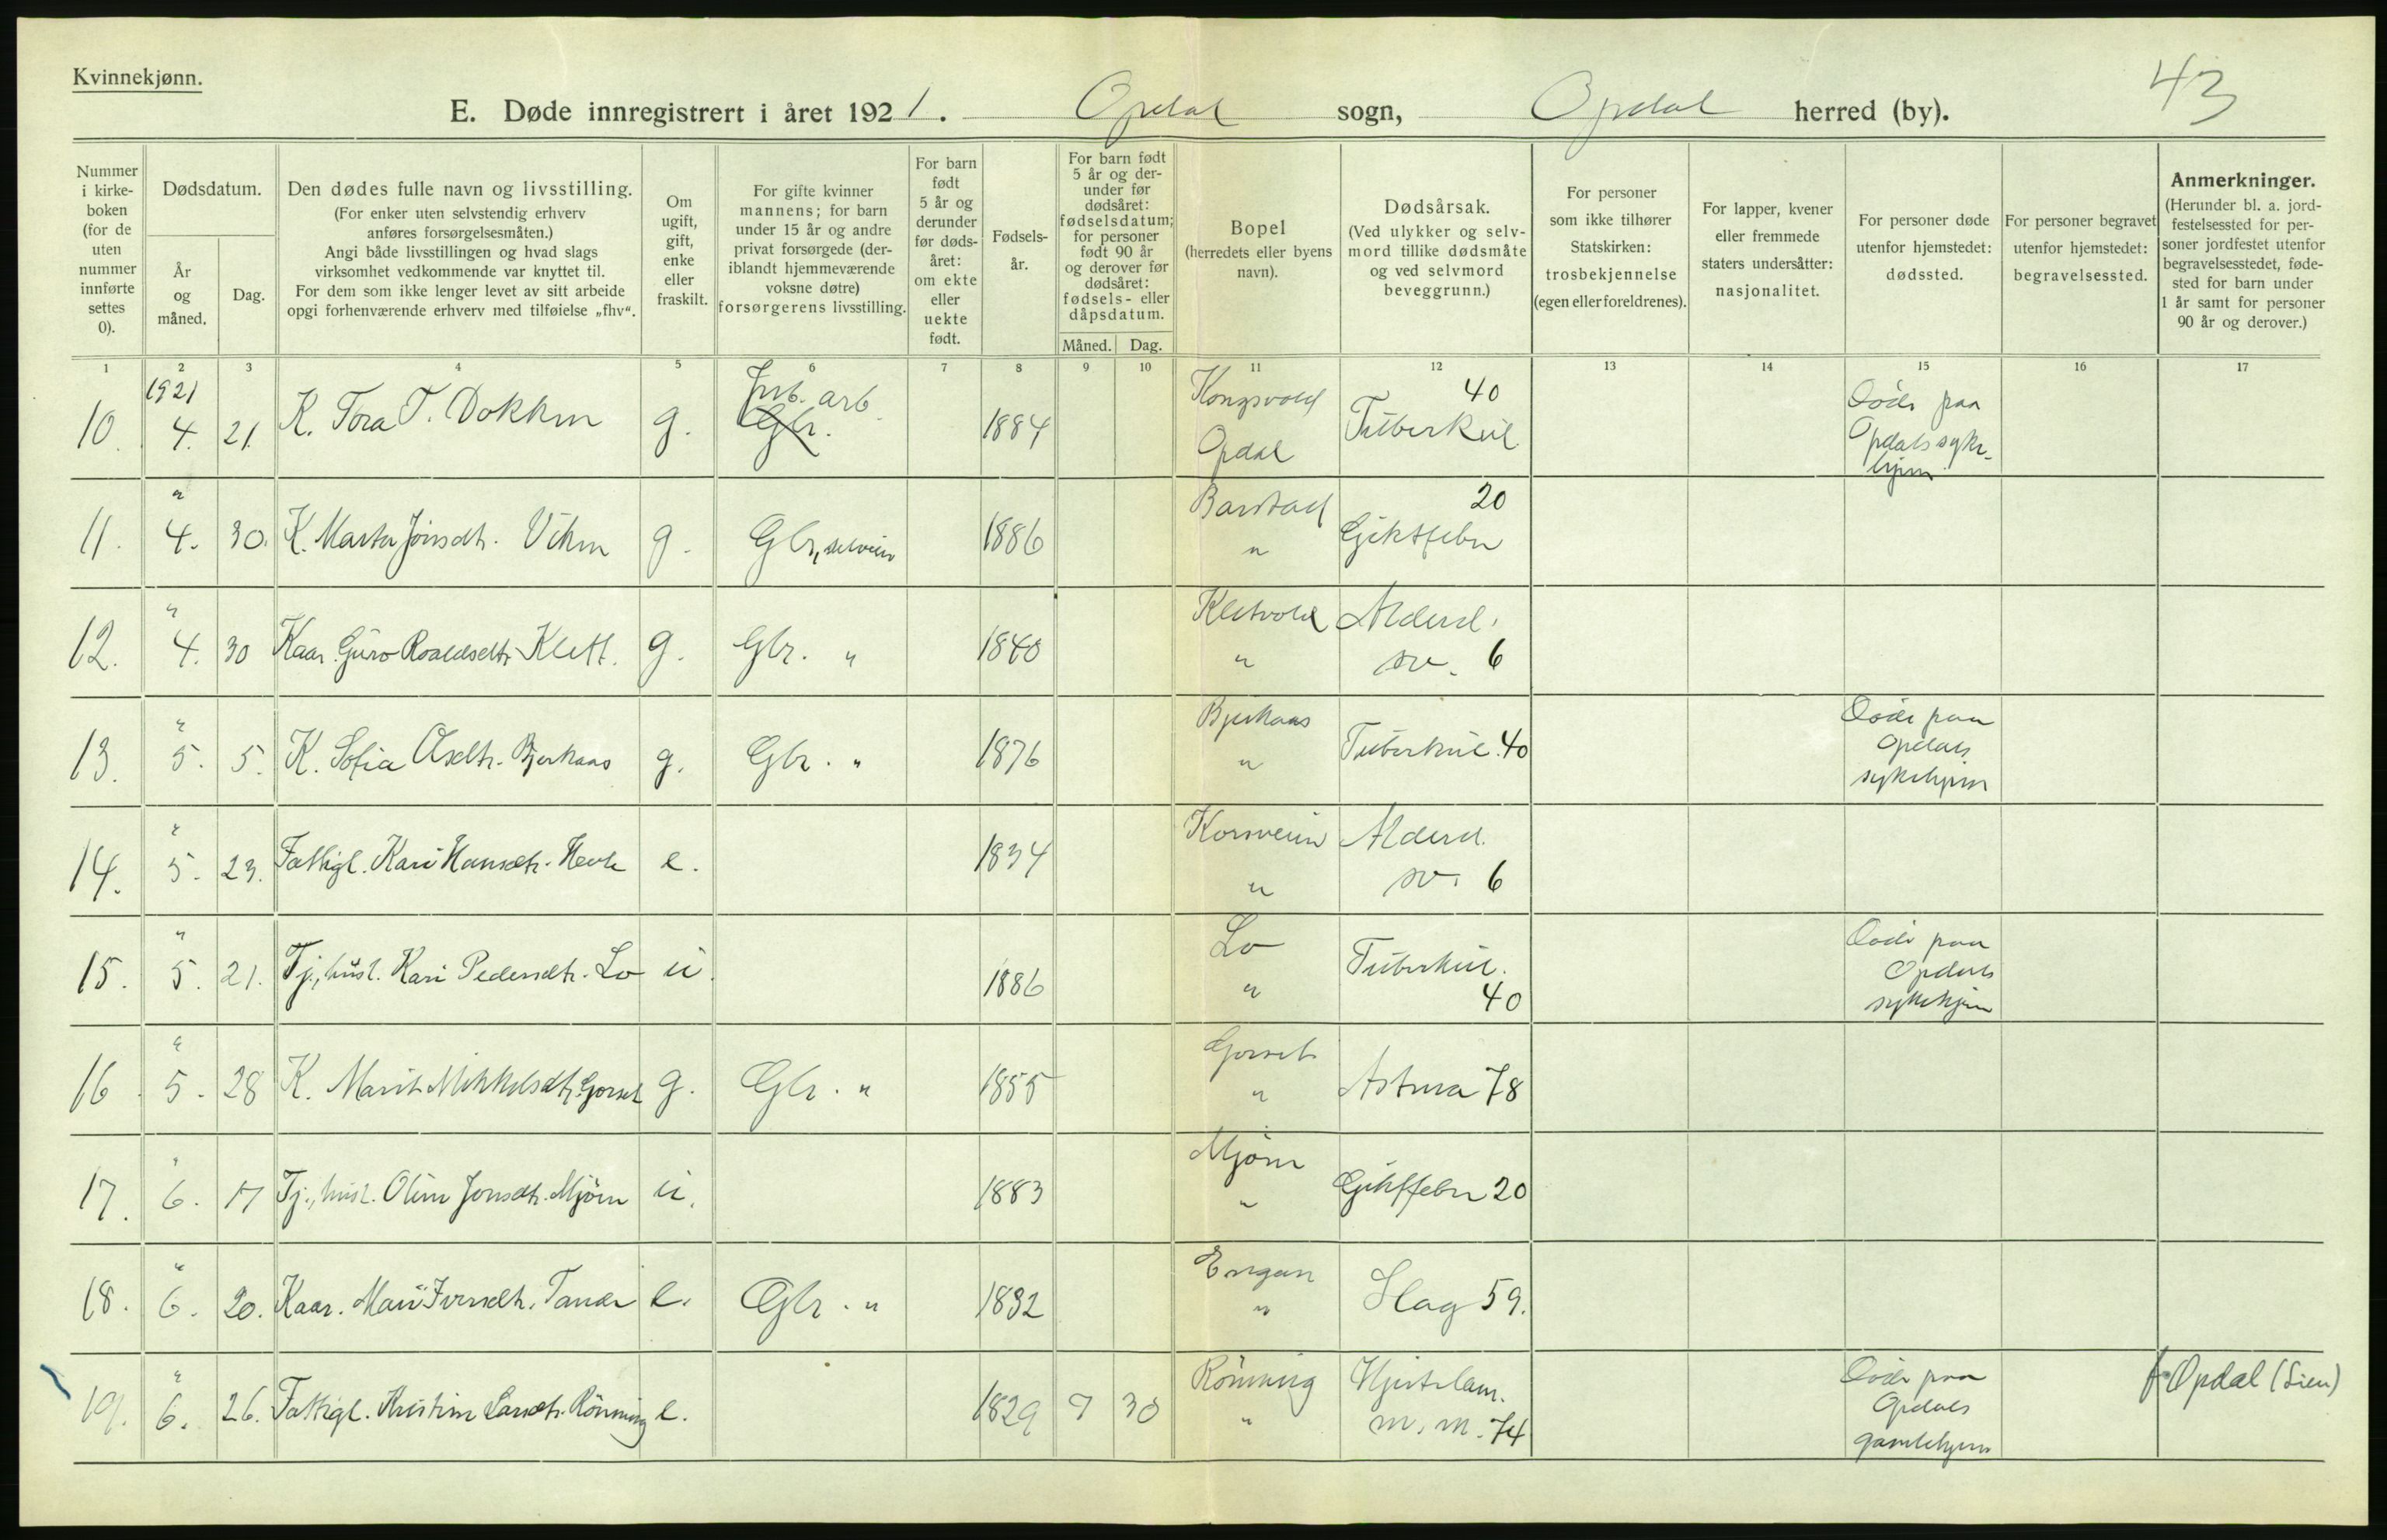 Kvinnekjønn.
43
E. Døde innregistrert i året 1921. Opdal sogn, Opdal herred (by).
Nummer i kirkeboken (for de uten nummer innførte settes 0).
Dødsdatum.
År og måned.
Dag.
Den dødes fulle navn og livsstilling.
(For enker uten selvstendig erhverv anføres forsørgelsesmåten.)
Angi både livsstillingen og hvad slags virksomhet vedkommende var knyttet til.
For dem som ikke lenger levet av sitt arbeide opgi forhenværende erhverv med tilføielse „fhv“.
Om ugift, gift, enke eller fraskilt.
For gifte kvinner mannens; for barn under 15 år og andre privat forsørgede (deriblandt hjemmeværende voksne døtre) forsørgerens livsstilling.
For barn født 5 år og derunder før dødsåret: om ekte eller uekte født.
Fødselsår.
For barn født 5 år og derunder før dødsåret: fødselsdatum; for personer født 90 år og derover før dødsåret: fødsels- eller dåpsdatum.
Måned.
Dag.
Bopel
(herredets eller byens navn).
Dødsårsak.
(Ved ulykker og selvmord tillike dødsmåte og ved selvmord beveggrunn.)
For personer som ikke tilhører Statskirken: trosbekjennelse (egen eller foreldrenes).
For lapper, kvener eller fremmede staters undersåtter: nasjonalitet.
For personer døde utenfor hjemstedet: dødssted.
For personer begravet utenfor hjemstedet: begravelsessted.
Anmerkninger.
(Herunder bl. a. jordfestelsessted for personer jordfestet utenfor begravelsesstedet, fødested for barn under 1 år samt for personer 90 år og derover.)
1 2 3 4 5 6 7 8 9 10 11 12 13 14 15 16 17
10. 1921 4. 21. K. Tora T. Dokken g. arb. Gbr. 1884 Kongsvold Opdal Tuberkul. 40 Døde paa Opdals sykehjem
11. " 4. 30. K. Marta Jonsdtr. Viken g. Gbr, selveier 1886 Barstad " Giktfeber 20
12. " 4. 30 Kaar. Guro Roaldsdtr. Klett. g. Gbr. " 1840 Kletvold " Alderd. sv. 6
13. " 5. 5. K. Sofia Olsdtr. Bjerkaas g. Gbr. " 1876 Bjerkaas " Tuberkul. 40 Døde paa Opdals sykehjem
14. " 5. 23. Fattigl. Kari Hansdtr. e. 1834 " Alderd. sv. 6
15. " 5. 21. Tj., husl. Kari Pedersdtr. Lo u. 1886 Lo " Tuberkul. 40 Døde paa Opdals sykehjem
16. " 5. 28 K. Marit Mikkelsdtr. Gorset g. Gbr. " 1855 Gorset " Astma 78
17. " 6. 17 Tj., husl. Oline Jonsdtr. Mjøen u. 1883 Mjøen " Giktfeber 20
18. " 6. 20. Kaar. Mari Iversdtr. e. Gbr. " 1832 Engan " Slag 59.
19. " 6. 26. Fattigl. Kristine Larsdtr. Rönning e. 1829 9 30 Rönning " Hjertelam. m. m. 74 Døde paa Opdals gamlehjem f. Opdal